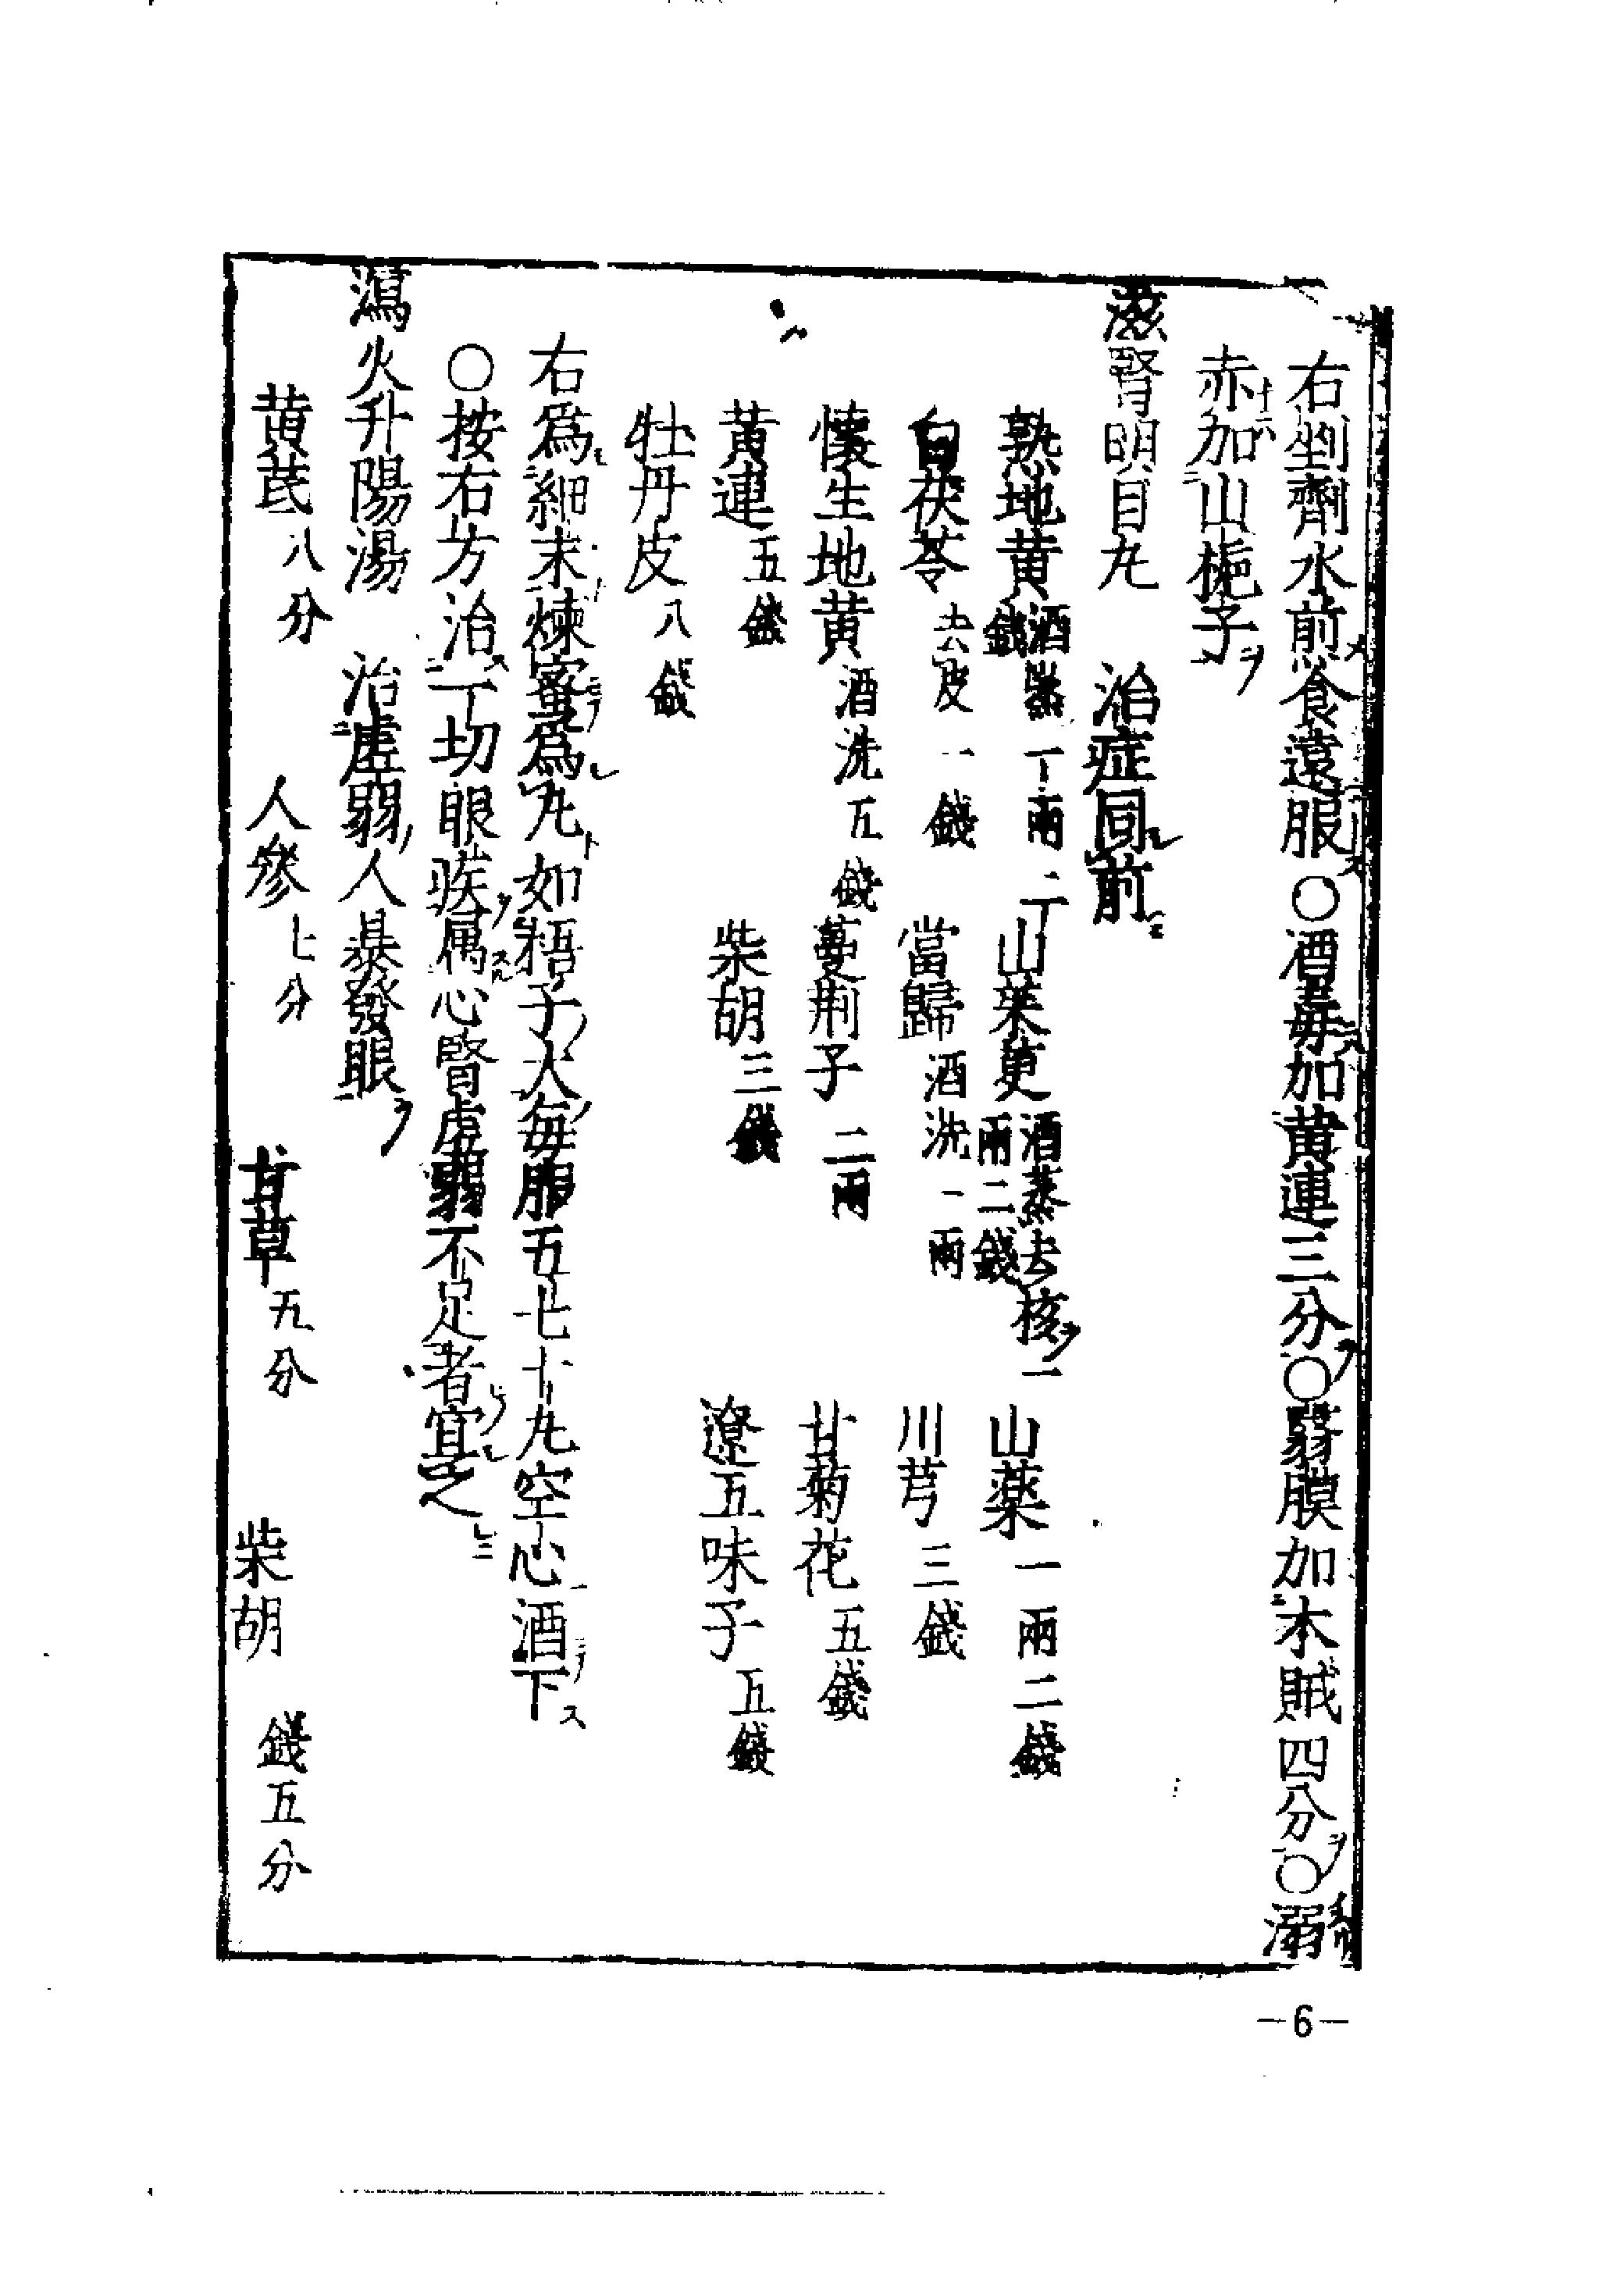 右剉劑水煎食遠服○酒毒加黄連三分○翳膜加木賊四分○溺
赤加山梔子
滋腎明目丸　治症同前
熟地黄酒蒸一兩二錢　山茱萸酒蒸去核一兩二錢　山薬一兩二錢
白茯苓去皮一錢　當歸酒洗一兩　川芎三錢
懷生地黄酒洗五錢　蔓荆子二兩　甘菊花五錢
黄連五錢　柴胡三錢　遼五味子五錢
牡丹皮八錢
右爲細末煉蜜爲丸如梧子大毎服五七十丸空心酒下
○按右方治一切眼疾属心腎虚弱不足者宜之
瀉火升陽湯　治虚弱人暴發眼
黄芪八分　人參七分　甘草五分　柴胡錢五分
—6—